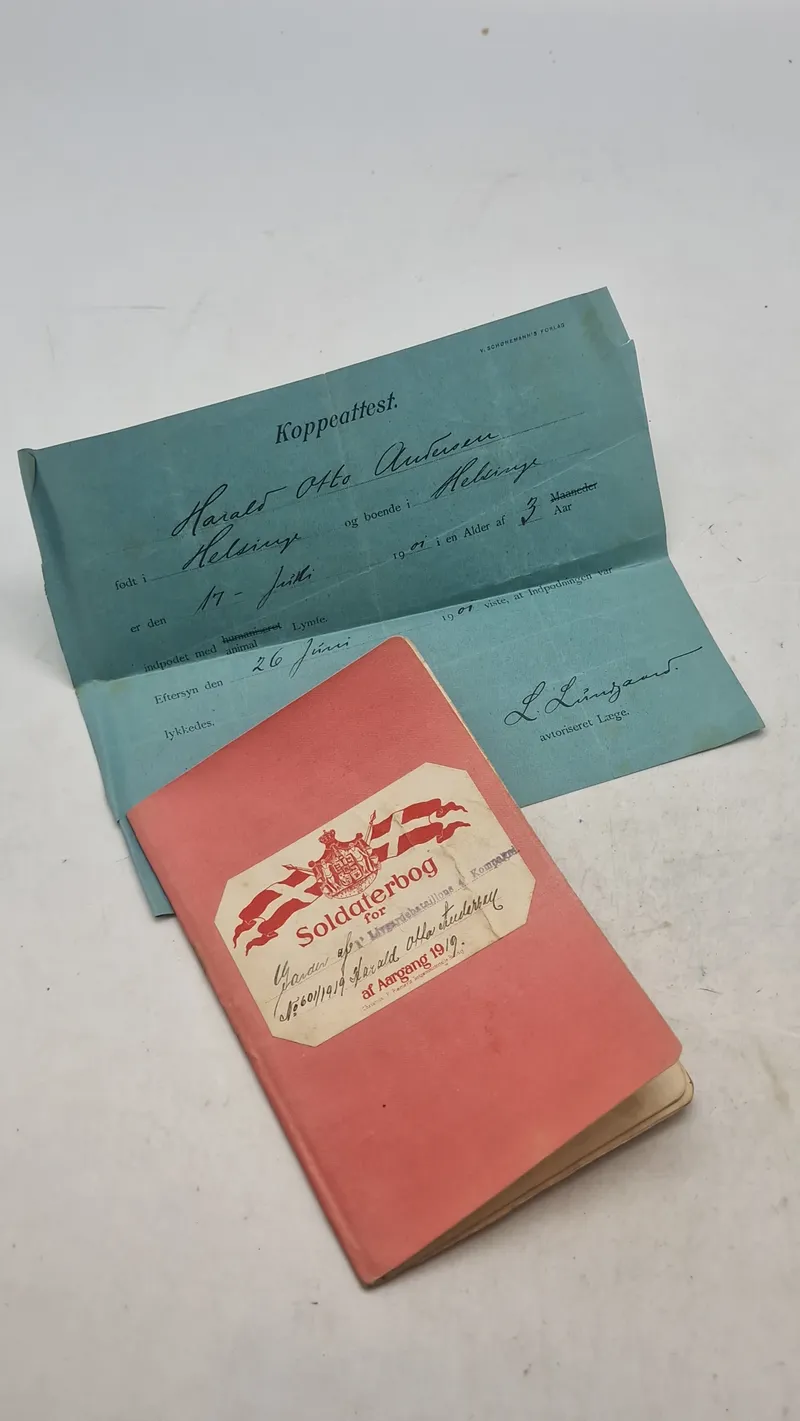 V. SCHØNEMANN'S FORLAG
Koppeattest.
Harald Otto Andersen
født i Helsinge og boende i Helsinge
er den 17 - Juni 1901 i en Alder af 3 Maaneder Aar
indpodet med humaniseret animal Lymfe.
Eftersyn den 26 Juni 1901 viste, at Indpodningen var
lykkedes.
L. Lundgaard.
avtoriseret Læge.
Soldaterbog
for
Livgardebataillons 4' Kompagni
Garder af
No 601/1919 Harald Otto Andersen
af Aargang 1919.